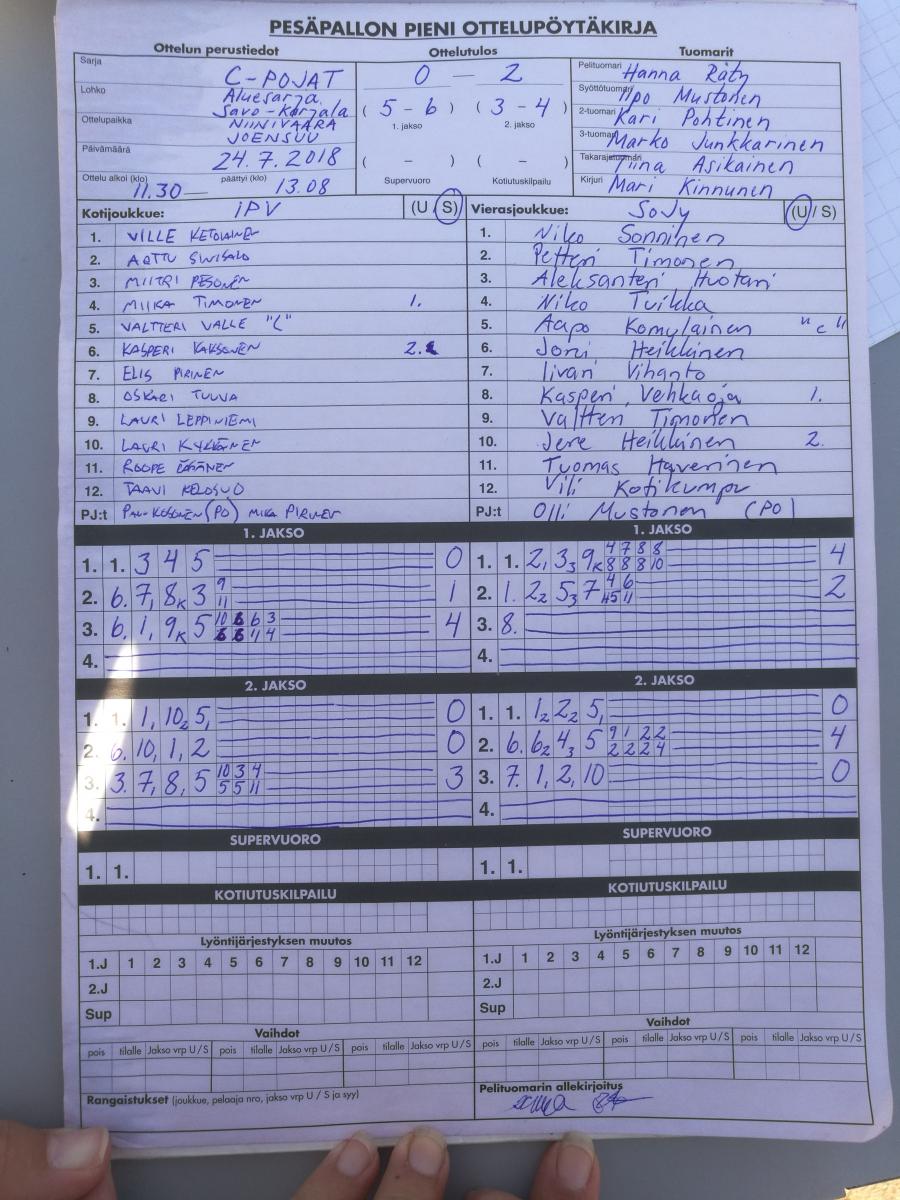 PESÄPALLON PIENI OTTELUPÖYTÄKIRJA
Ottelun perustiedot
Sarja C-POJAT
Lohko Aluesarja
Savo-Karjala
Ottelupaikka NIINIVAARA
JOENSUU
Päivämäärä 24.7.2018
Ottelu alkoi (klo) 11.30 — päättyi (klo) 13.08
Ottelutulos
0 — 2
( 5 - 6 ) ( 3 - 4 )
1. jakso 2. jakso
( - ) ( - )
Supervuoro Kotiutuskilpailu
Tuomarit
Pelituomari Hanna Räty
Syöttötuomari Ilpo Mustonen
2-tuomari Kari Pohtinen
3-tuomari Marko Junkkarinen
Takarajatuomari Tiina Asikainen
Kirjuri Mari Kinnunen
Kotijoukkue: IPV (U / S)
1. VILLE KETOLAINEN
2. ARTTU SIVISALO
3. MIITRI PESONEN
4. MIIKA TIMONEN 1.
5. VALTTERI VALLE "C"
6. KASPERI KAKSONEN 2.
7. ELIS PIRINEN
8. OSKARI TUUVA
9. LAURI LEPPINIEMI
10. LAURI KYKKÄNEN
11. ROOPE
12. TAAVI
PJ:t (PO) MIKA PIRINEN
Vierasjoukkue: SoJy (U / S)
1. Niko Sonninen
2. Petteri Timonen
3. Aleksanteri Huotari
4. Niko Tuikka
5. Aapo Komulainen "c"
6. Joni Heikkinen
7. Iivari Vihanto
8. Kasperi Vehkaoja 1.
9. Valtteri Timonen
10. Jere Heikkinen 2.
11. Tuomas Haverinen
12. Vili Kotikumpu
PJ:t Olli Mustonen (PO)
1. JAKSO
1. 1. 3 4 5 0
2. 6. 7, 8K 3 9 1
11
3. 6. 1, 9K 5 10 6 6 3 4
6 6 11 4
4.
1. JAKSO
1. 1. 2, 3₃ 9K 4 7 8 8 4
8 8 8 10
2. 1. 2₂ 5₃ 7 4 6 2
5 11
3. 8.
4.
2. JAKSO
1. 1. 1, 10₂ 5, 0
2. 6. 10, 1, 2 0
3. 3. 7, 8, 5 10 3 4 3
5 5 11
4.
2. JAKSO
1. 1. 1₂ 2₂ 5, 0
2. 6. 6₂ 4₃ 5 9 1 2 2 4
2 2 2 4
3. 7. 1, 2, 10 0
4.
SUPERVUORO
1. 1.
SUPERVUORO
1. 1.
KOTIUTUSKILPAILU
KOTIUTUSKILPAILU
Lyöntijärjestyksen muutos
1.J 1 2 3 4 5 6 7 8 9 10 11 12
2.J
Sup
Lyöntijärjestyksen muutos
1.J 1 2 3 4 5 6 7 8 9 10 11 12
2.J
Sup
Vaihdot
pois tilalle Jakso vrp U / S pois tilalle Jakso vrp U / S pois tilalle Jakso vrp U / S
Vaihdot
pois tilalle Jakso vrp U / S pois tilalle Jakso vrp U / S pois tilalle Jakso vrp U / S
Rangaistukset (joukkue, pelaaja nro, jakso vrp U / S ja syy)
Pelituomarin allekirjoitus